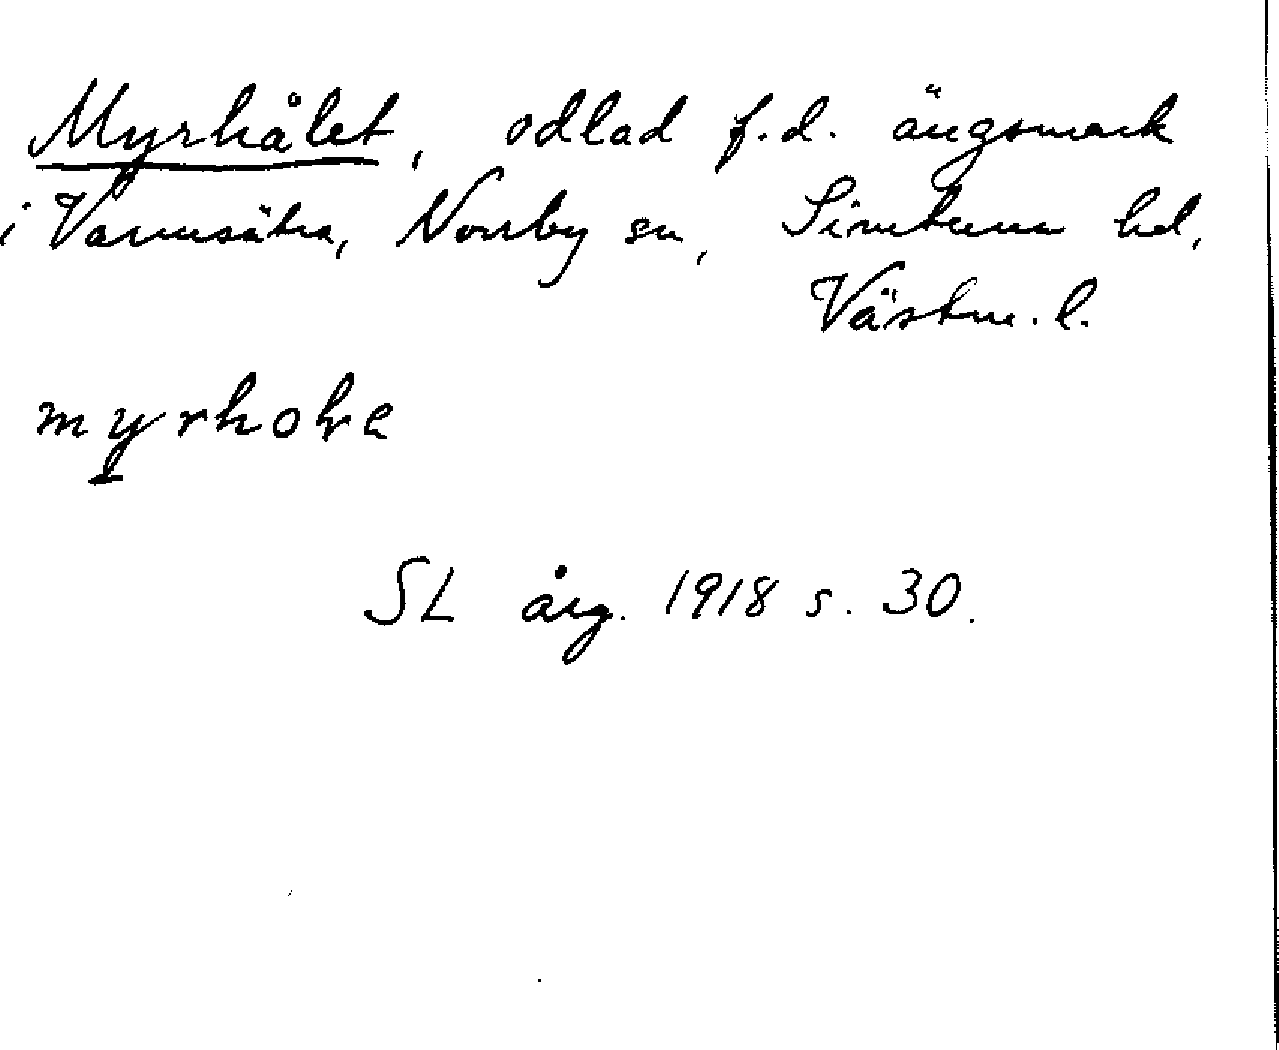 Myrhålet, odlad f.d. ängsmark
i Vansätra, Norrby sn, Simtuna hd,
Västm. l.
myrhole
SL årg. 1918 s. 30.